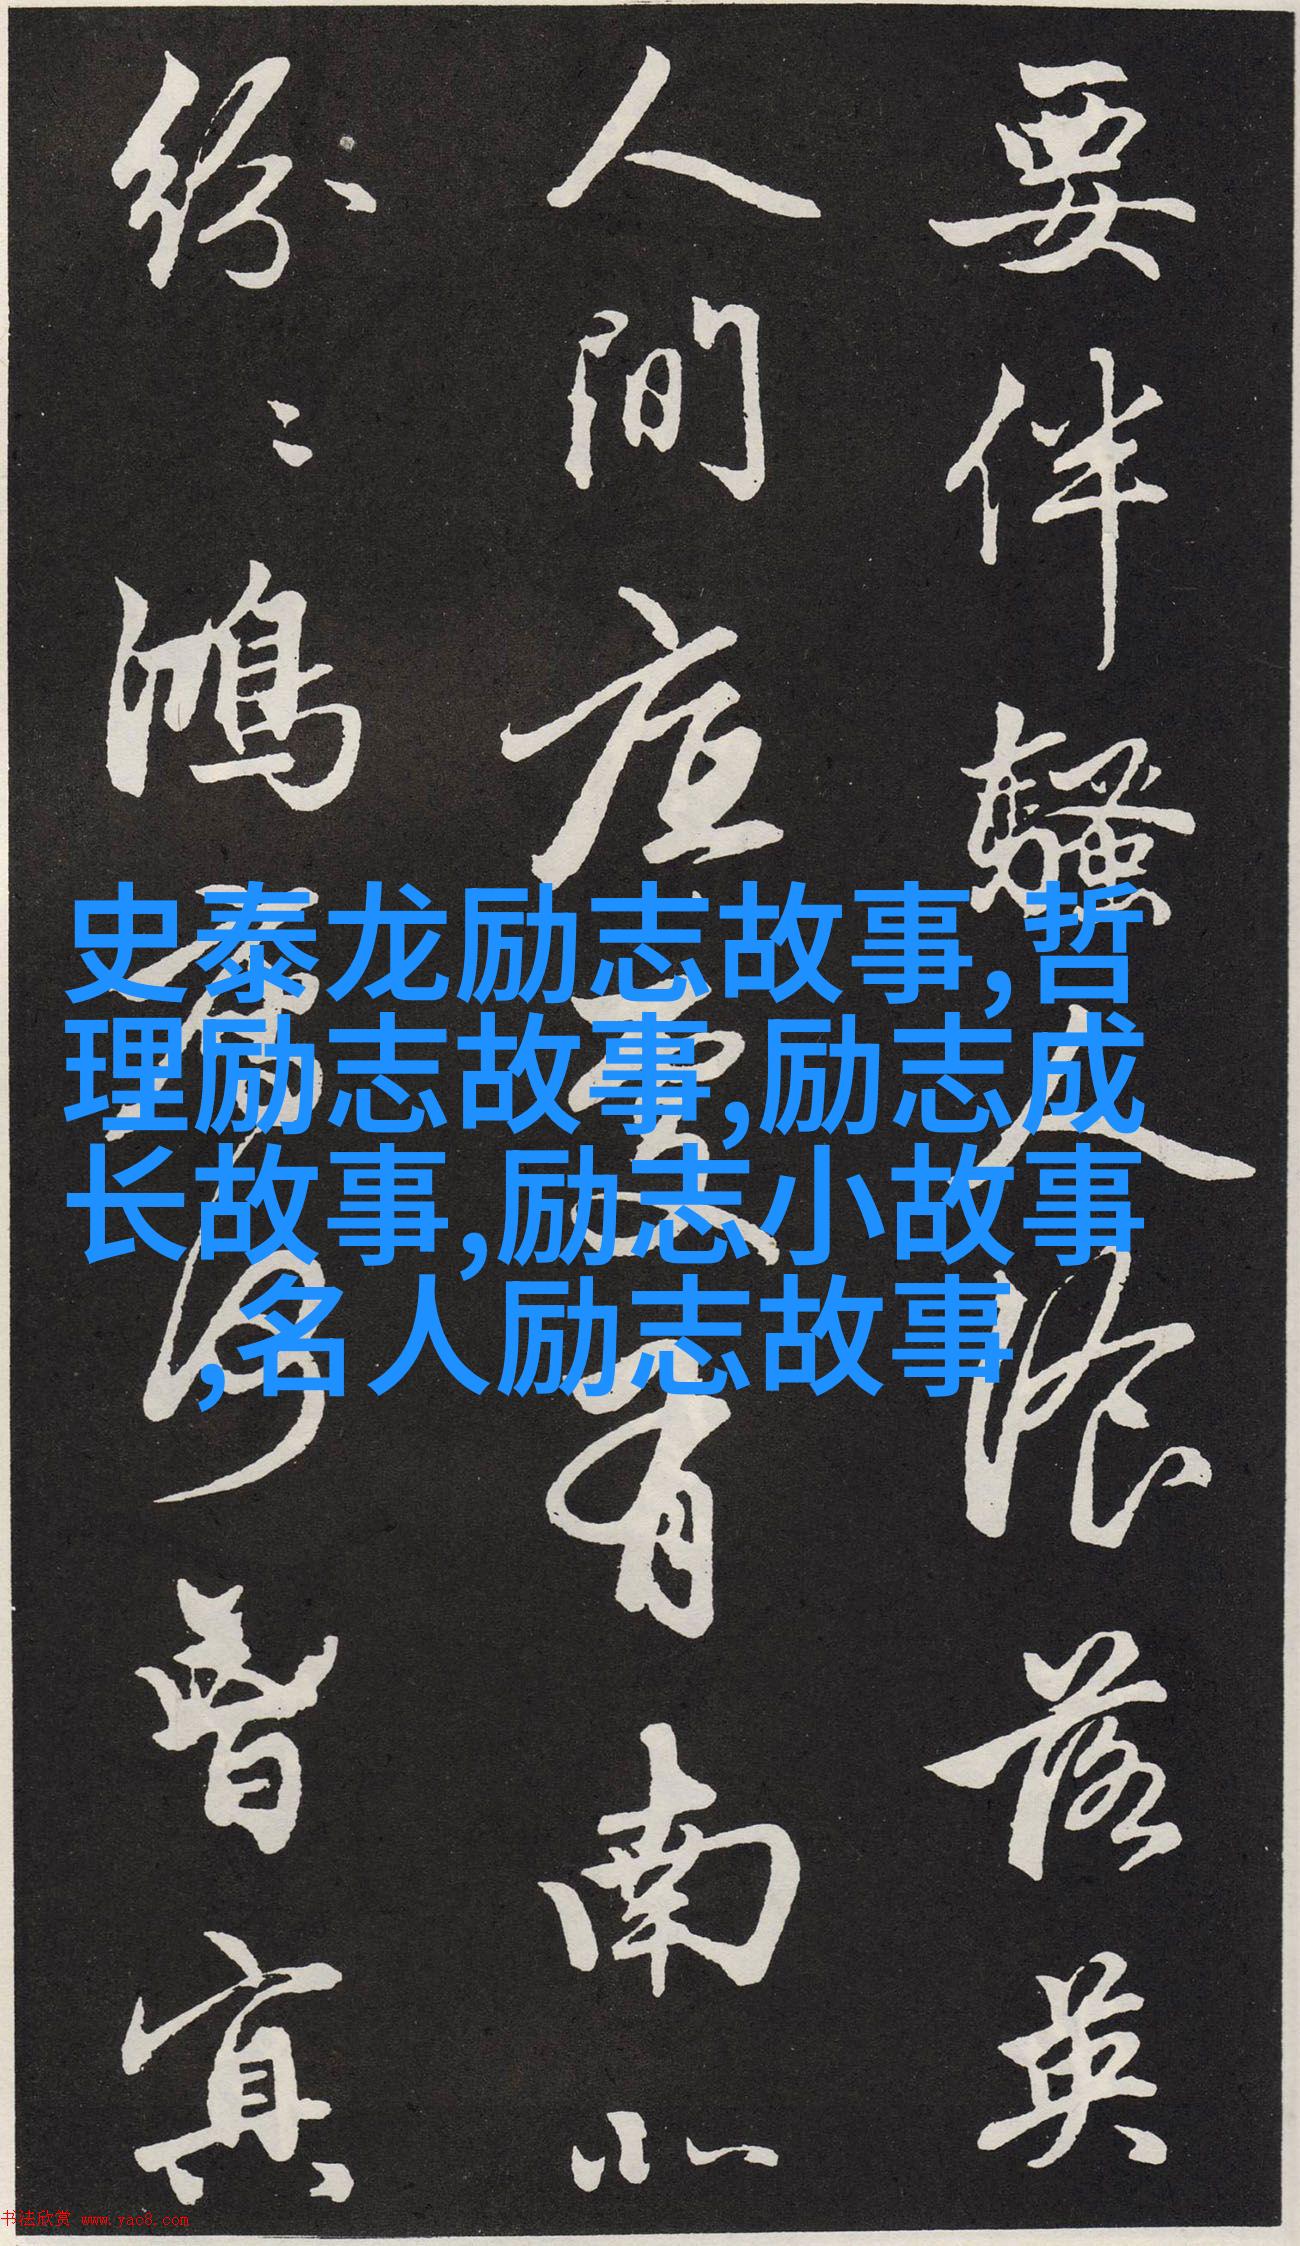 要伴騷人飡落英
人間應更有南北
紛〻鴻鴈何曾冥
史泰龙励志故事,哲
理励志故事,励志成
长故事,励志小故事
,名人励志故事
书法欣赏 www.yac8.com